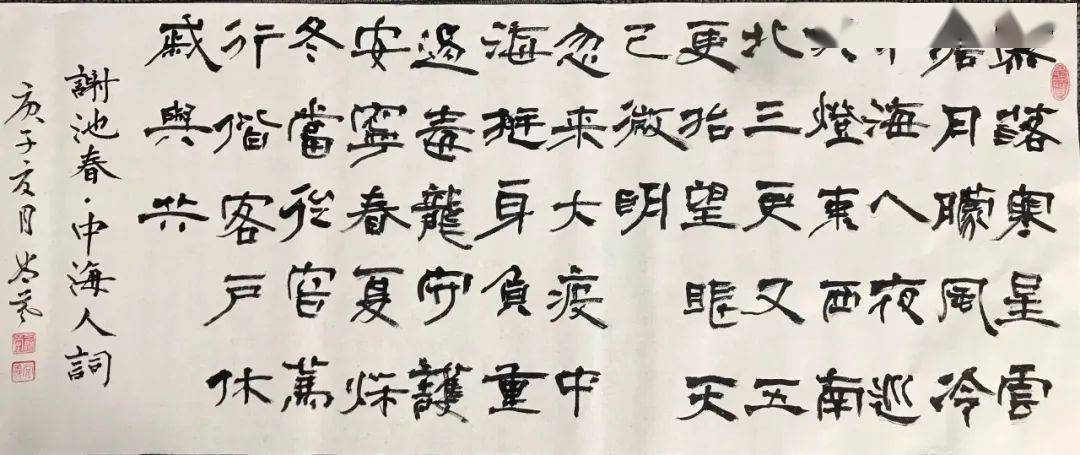 落寒星雲
月朦風冷
海人夜巡
燈東西南
北三更又五
更抬望眼天
已微明
忽来大疫中
海挺身負重
遏毒龍守護
安寧春夏秌
冬當從
行偕客戶休
戚與共
謝池春·中海人詞
庚子友月